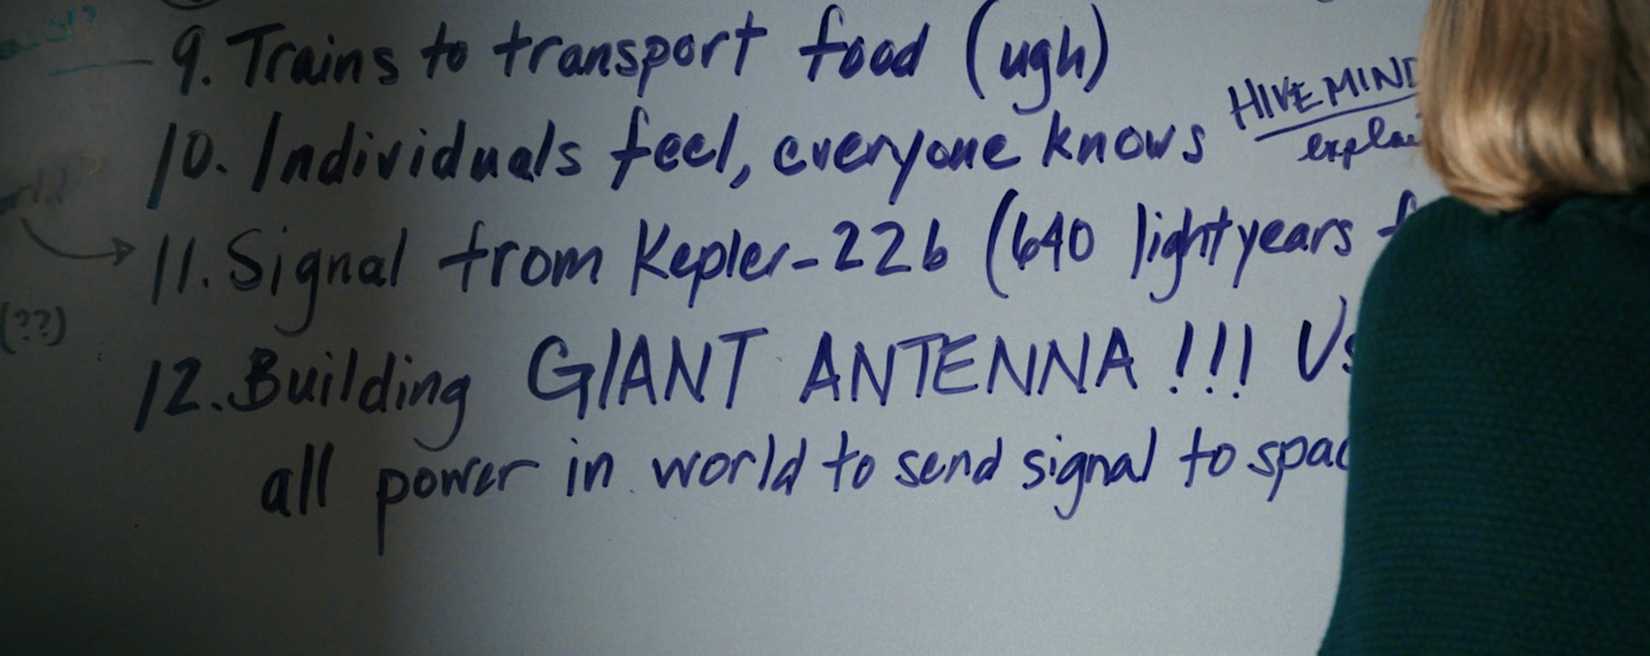 9. Trains to transport food (ugh)
HIVE MIND
10. Individuals feel, everyone knows
11. Signal from Kepler-22b (640 lightyears
(??)
12. Building GIANT ANTENNA!!!
all power in world to send signal to